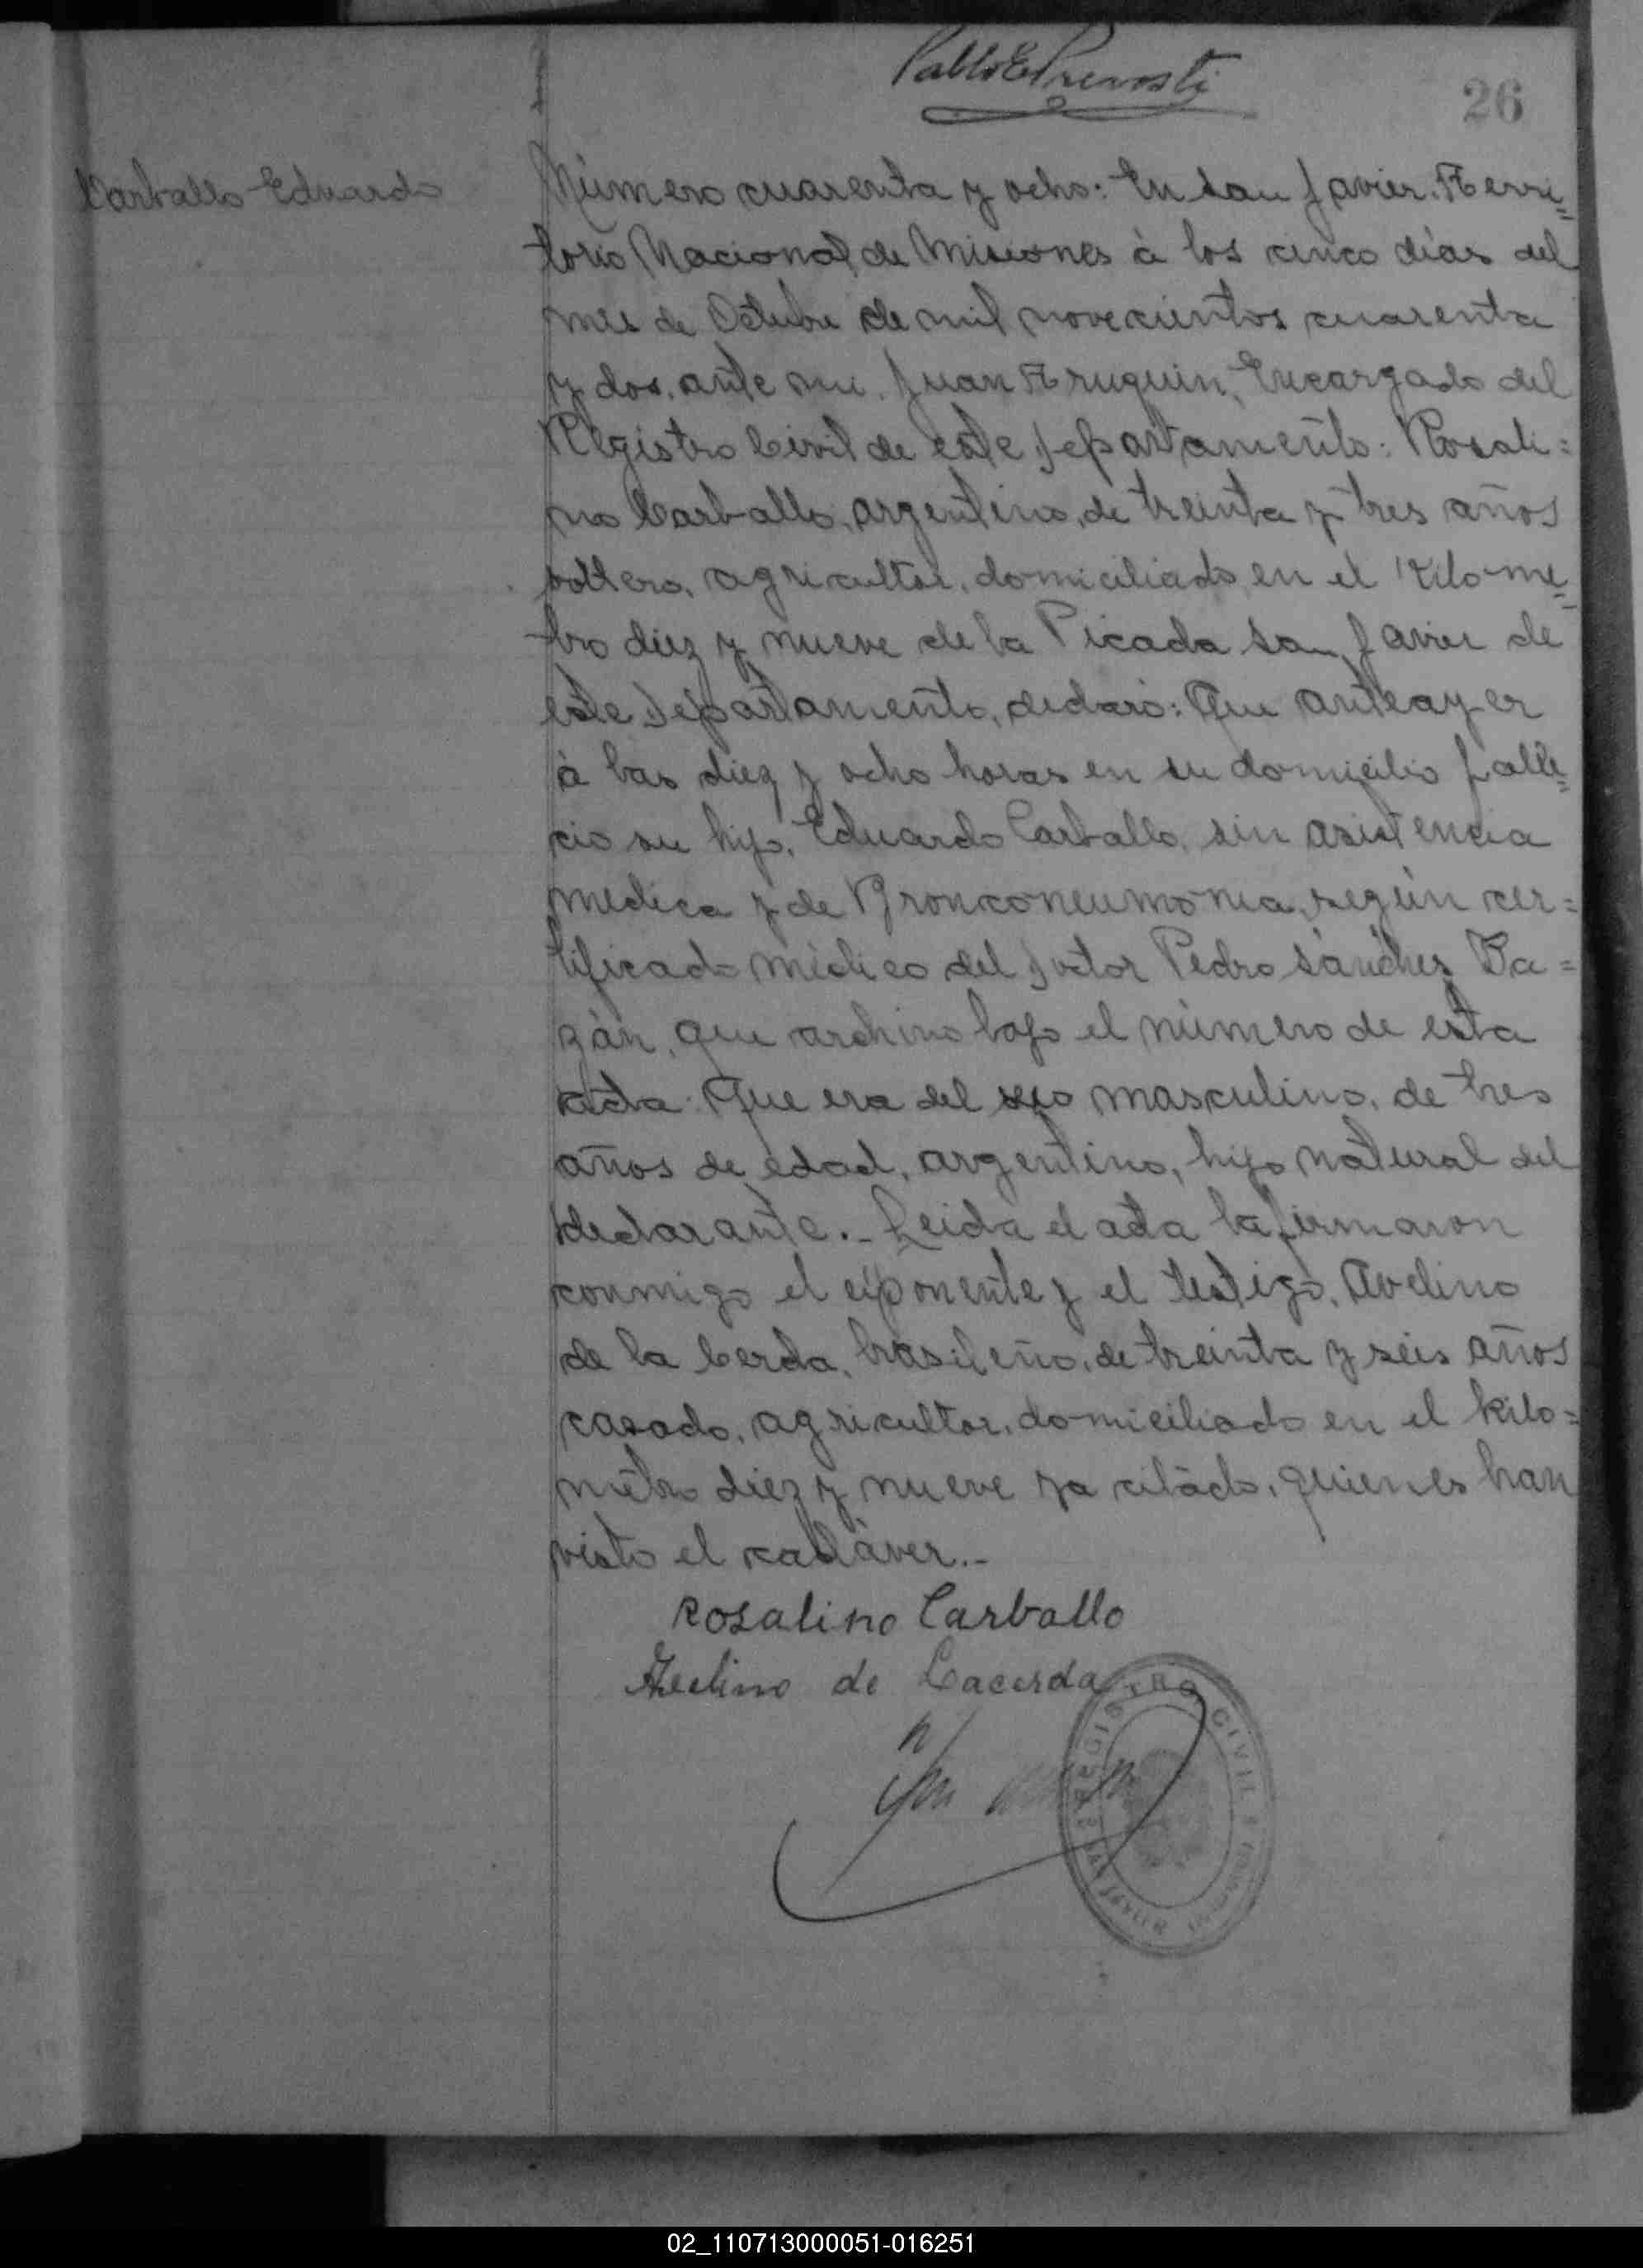 Pablo E Prevosti
26
Carballo Eduardo
Número cuarenta y ocho: En San Javier. Terri=
torio Nacional de Misiones à los cinco días del
mes de Octubre de mil novecientos cuarenta
y dos, ante mi, Juan Truquin, Encargado del
Registro Civil de este Departamento: Rosali=
no Carballo, argentino, de treinta y tres años
soltero, agricultor, domiciliado en el Kilome=
tro diez y nueve de la Picada San Javier de
este Departamento, declaró: Que anteayer
à las diez y ocho horas en su domicilio falle=
cio su hijo, Eduardo Carballo, sin asistencia
medica y de Bronconeumonia, según cer=
tificado médico del Doctor Pedro Sánchez Ba=
zán, que archivo bajo el número de esta
acta: Que era del sexo masculino, de tres
años de edad, argentino, hijo natural del
declarante.- Leida el acta la firmaron
conmigo el exponente y el testigo, Avelino
de la Cerda, brasileño, de treinta y seis años
casado, agricultor, domiciliado en el kilo=
metro diez y nueve ya citado, quienes han
visto el cadáver.-
Rosalino Carballo
Avelino de Lacerda
REGISTRO CIVIL
SAN JAVIER
02_110713000051-016251